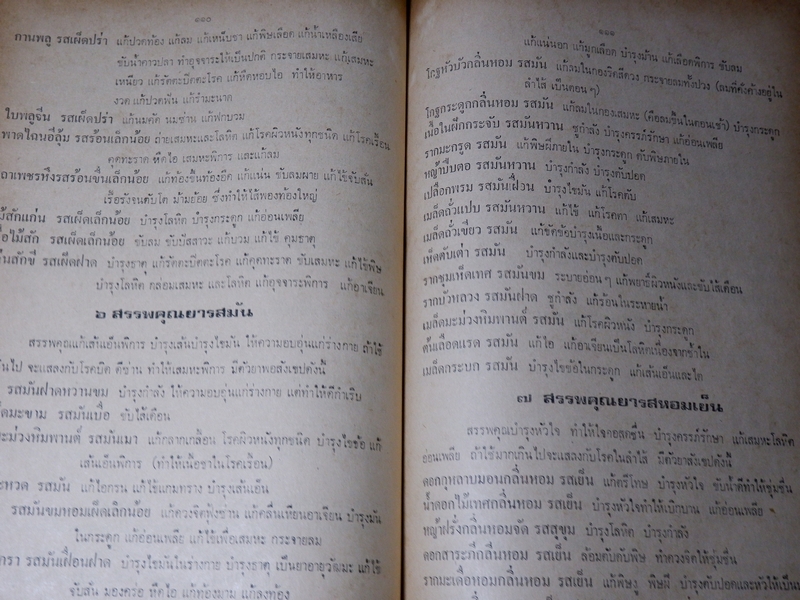 ๑๑๐
กานพลู รสเผ็ดปร่า แก้ปวดท้อง แก้ลม แก้เหน็บชา แก้พิษเลือด แก้น้ำเหลืองเสีย
ขับน้ำคาวปลา ทำอุจจาระให้เป็นปกติ กระจายเสมหะ แก้เสมหะ
เหนียว แก้รัตะปิตตะโรค แก้หืดหอบไอ ทำให้อาหาร
งวด แก้ปวดฟัน แก้รำมะนาด
ใบพลูจีน รสเผ็ดปร่า แก้นมคัด นมช้าน แก้ฟกบวม
พาดไฉนอีลุ้ม รสร้อนเล็กน้อย ถ่ายเสมหะและโลหิต แก้โรคผิวหนังทุกชนิด แก้โรคเรื้อน
คุดทะราด หืดไอ เสมหะพิการ และแก้ลม
ถาเพชรหึงรสร้อนขื่นเล็กน้อย แก้ท้องขึ้นท้องอืด แก้แน่น ขับลมผาย แก้ไข้จับสั่น
เรื้อรังจนตับโต ม้ามย้อย ซึ่งทำให้ไส้พองท้องใหญ่
ม้สักแก่น รสเผ็ดเล็กน้อย บำรุงโลหิต บำรุงกระดูก แก้อ่อนเพลีย
อไม้สัก รสเผ็ดเล็กน้อย ขับลม ขับปัสสาวะ แก้บวม แก้ไข้ คุมธาตุ
รสเผ็ดฝาด บำรุงธาตุ แก้รัตะปิตตะโรค แก้คุดทะราด ขับเสมหะ แก้ไข้พิษ
บำรุงโลหิต กล่อมเสมหะ และโลหิต แก้อุจจาระพิการ แก้อาเจียน
๖ สรรพคุณยารสมัน
สรรพคุณแก้เส้นเอ็นพิการ บำรุงเส้นบำรุงไขมัน ให้ความอบอุ่นแก่ร่างกาย ถ้าใช้
นไป จะแสลงกับโรคบิด ดีซ่าน ทำให้เสมหะพิการ มีตัวยาพอสังเขปดังนี้
รสมันฝาดหวานขม บำรุงกำลัง ให้ความอบอุ่นแก่ร่างกาย แต่ทำให้ดีกำเริบ
ดมะขาม รสมันเบื่อ ขับไส้เดือน
ะม่วงหิมพานต์ รสมันเมา แก้กลากเกลื้อน โรคผิวหนังทุกชนิด บำรุงไขข้อ แก้
เส้นเอ็นพิการ (ทำให้เนื้อชาในโรคเรื้อน)
ะหวด รสมัน แก้ไอกรน แก้ไข้แกมทราง บำรุงเส้นเอ็น
รสมันขมหอมเผ็ดเล็กน้อย แก้ดวงจิตฟุ้งซ่าน แก้คลื่นเหียนอาเจียน บำรุงมัน
ในกระดูก แก้อ่อนเพลีย แก้ไข้เพื่อเสมหะ กระจายลม
กรา รสมันเฝื่อนฝาด บำรุงไขมันในร่างกาย บำรุงธาตุ เป็นยาอายุวัฒนะ แก้ไข้
จับสั่น มองคร่อ หืดไอ แก้ท้องมาน แก้ลงท้อง
๑๑๑
แก้แน่นอก แก้มูกเลือด บำรุงม้าม แก้เลือดพิการ ขับลม
โกฐหัวบัวกลิ่นหอม รสมัน แก้ลมในกองริดสีดวง กระจายลมทั้งปวง (ลมที่คั่งค้างอยู่ใน
ลำไส้ เป็นตอนๆ)
โกฐกระดูกกลิ่นหอม รสมัน แก้ลมในกองเสมหะ (คือลมขึ้นในตอนเช้า) บำรุงกระดูก
เนื้อในฝักกระจับ รสมันหวาน ชูกำลัง บำรุงครรภ์รักษา แก้อ่อนเพลีย
รากมะกรูด รสมัน แก้พิษฝีภายใน บำรุงกระดูก ดับพิษภายใน
หญ้าปืนตอ รสมันหวาน บำรุงกำลัง บำรุงตับปอด
เปลือกพรม รสมันเฝื่อน บำรุงไขมัน แก้โรคตับ
เมล็ดถั่วแปบ รสมันหวาน แก้ไข้ แก้โรคตา แก้เสมหะ
เมล็ดถั่วเขียว รสมัน แก้ขัดข้อบำรุงเนื้อและกระดูก
เห็ดตับเต่า รสมัน บำรุงกำลังและบำรุงตับปอด
รากชุมเห็ดเทศ รสมันขม ระบายอ่อนๆ แก้พยาธิ์ผิวหนังและขับไส้เดือน
รากบัวหลวง รสมันฝาด ชูกำลัง แก้ร้อนในระหายน้ำ
เมล็ดมะม่วงหิมพานต์ รสมัน แก้โรคผิวหนัง บำรุงกระดูก
ต้นเลือดแรด รสมัน แก้ไอ แก้อาเจียนเป็นโลหิตเนื่องจากช้ำใน
เมล็ดกระบก รสมัน บำรุงไขข้อในกระดูก แก้เส้นเอ็นและไต
๗ สรรพคุณยารสหอมเย็น
สรรพคุณบำรุงหัวใจ ทำให้ใจอดสดชื่น บำรุงครรภ์รักษา แก้เสมหะโลหิต
อ่อนเพลีย ถ้าใช้มากเกินไปจะแสลงกับโรคในลำไส้ มีตัวยาสังเขปดังนี้
ดอกกุหลาบมอนกลิ่นหอม รสเย็น แก้ตรีโทษ บำรุงหัวใจ ขับน้ำดีทำให้ชุ่มชื่น
น้ำดอกไม้เทศกลิ่นหอม รสเย็น บำรุงหัวใจทำให้เบิกบาน แก้อ่อนเพลีย
หญ้าฝรั่งกลิ่นหอมจัด รสสุขุม บำรุงโลหิต บำรุงกำลัง
ดอกสาระภีกลิ่นหอม รสเย็น ล้อมตับดับพิษ ทำดวงจิตให้ชุ่มชื่น
รากมะเดื่อหอมกลิ่นหอม รสเย็น แก้พิษงู พิษฝี บำรุงตับปอดและหัวใจ ให้เป็น